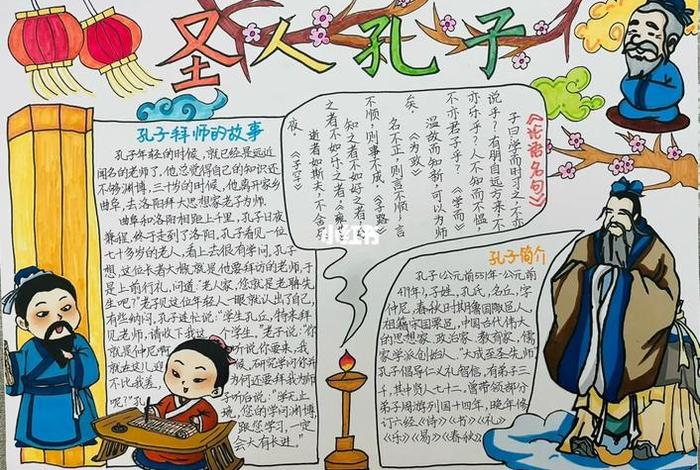 圣人孔子
孔子拜师的故事
孔子年轻的时候,就已经是远近
闻名的老师了,他总觉得自己的知识还
不够渊博,三十岁的时候,他离开家乡
曲阜,去洛阳拜大思想家老子为师.
曲阜和洛阳相距上千里,孔子日夜
兼程,终于走到了洛阳.孔子看见一位
七十多岁的老人,看上去很有学问.孔子
想,这位长者大概就是他要拜访的老师,于
是上前行礼,问道:"老人家,您就是老聃先
生吧?"老子见这位年轻人一眼就认出了自己,
有些纳闷.孔子连忙说:"学生孔丘,特来拜
见老师,请收下我这个学生."老子说:"你
就是仲尼啊,听说你要来,我
就在这儿迎候,研究学问你并
不比我差,为何还要拜我为师
呢?"孔子听后说:"学无止
境,您的学问渊博,
跟您学习,一定
会大有长进."
《论语名句》
子曰学而时习之,不亦
说乎?有朋自远方来,不
亦乐乎?人不知而不愠,
不亦君子乎?《学而》
温故而知新,可以为师
矣.《为政》
名不正,则言不顺,言
不顺,则事不成.《子路》
知之者不如好之者,好
之者不如乐之者.《雍
逝者如斯夫,不舍昼
夜.《子罕》
小红书
孔子简介
孔子(公元前551年-公元前
479年),子姓,孔氏,名丘,字
仲尼,春秋时期鲁国陬邑人,
祖籍宋国栗邑,中国古代伟大
的思想家、政治家、教育家,儒
家学派创始人、"大成至圣先师".
孔子倡导仁义礼智信,有弟子三
千,其中贤人七十二,曾带领部分
弟子周游列国十四年,晚年修
订六经《诗》《书》《礼》
《乐》《易》《春秋》